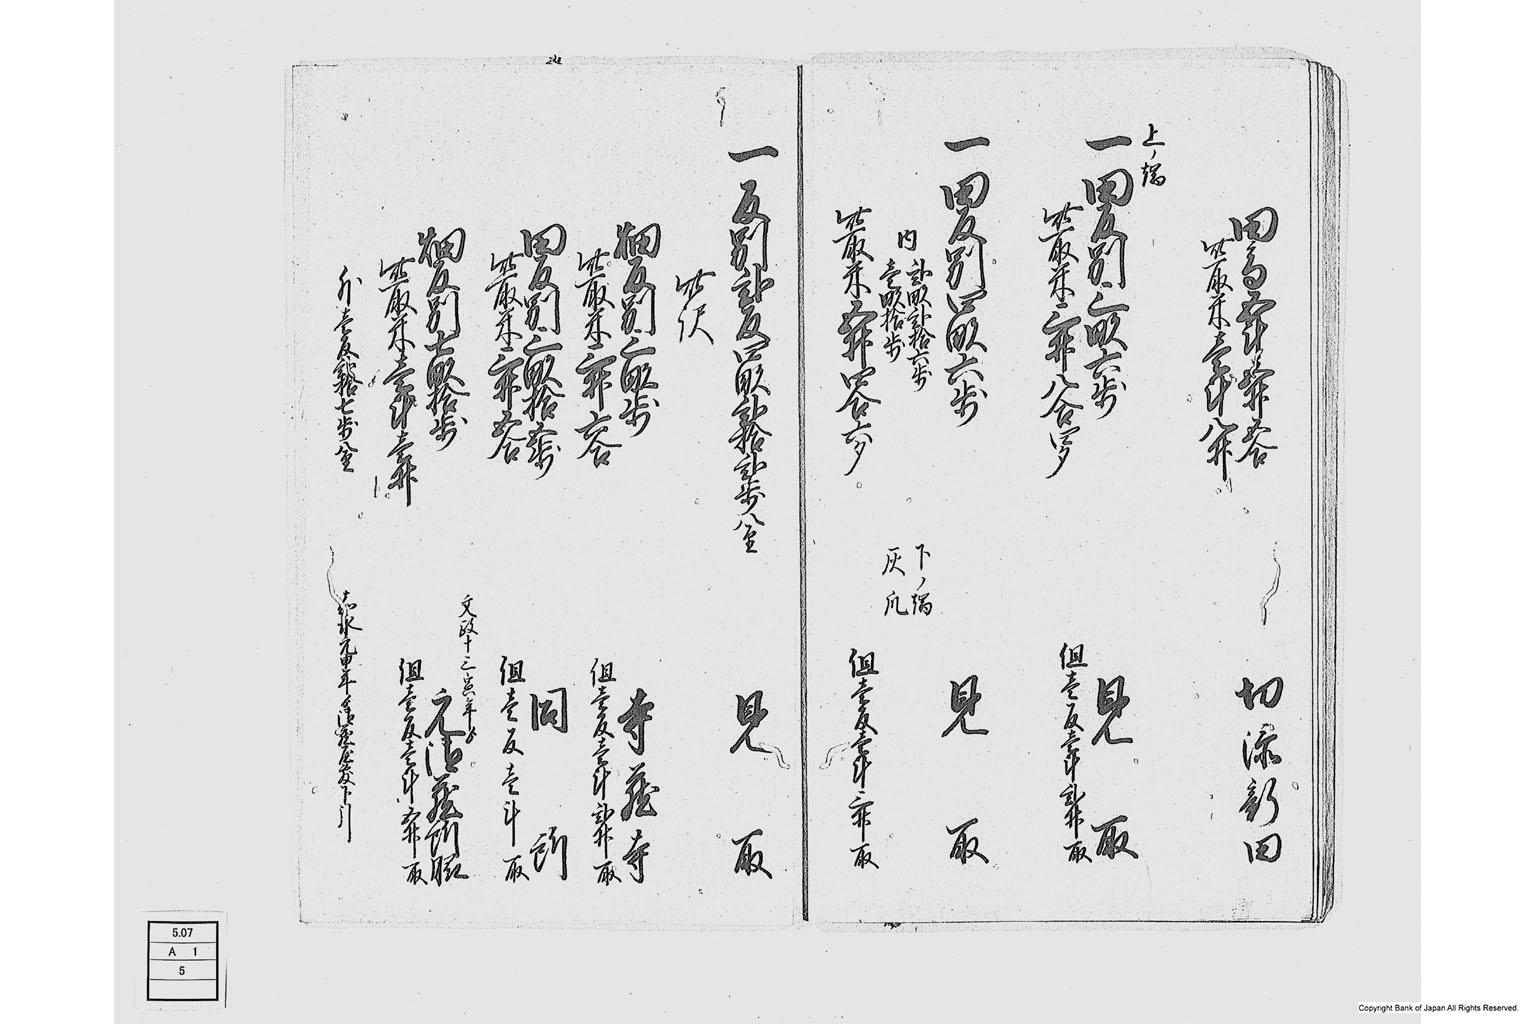 田高五斗壱升五合
此取米壱斗八升
切添新田
上ノ端
一田反別三畝六歩
見取
此取米三升八合四夕
但壱反壱斗弐升取
一田反別四畝六歩
見取
内
弐畝弐拾六歩
下ノ端
壱畝拾歩
灰爪
此取米五升四合六夕
但壱反壱斗三升取
一反別弐反四畝弐拾弐歩
見取
此訳
畑反別三畝歩
寺
此取米三升六合
但壱反壱斗弐升取
田反別三畝拾五歩
同所
此取米三升五合
但壱反壱斗取
文政十三寅年
畑反別七畝拾歩
此取米壱斗壱升
但壱反壱斗五升取
外壱反弐拾七歩
嘉永元申年